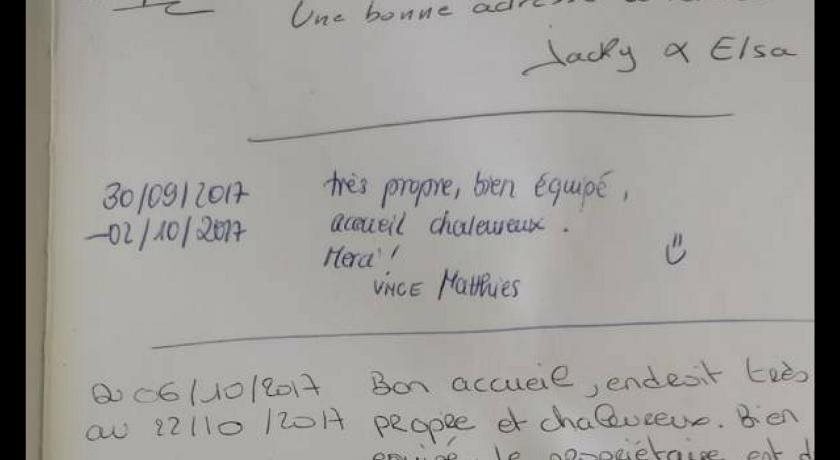 Une bonne adresse
Jacky & Elsa
30/09/2017 très propre, bien équipé,
-02/10/2017 accueil chaleureux.
Merci!
Matthies
06/10/2017 Bon accueil, endroit très
au 22/10/2017 propre et chaleureux. Bien
équipé le propriétaire est